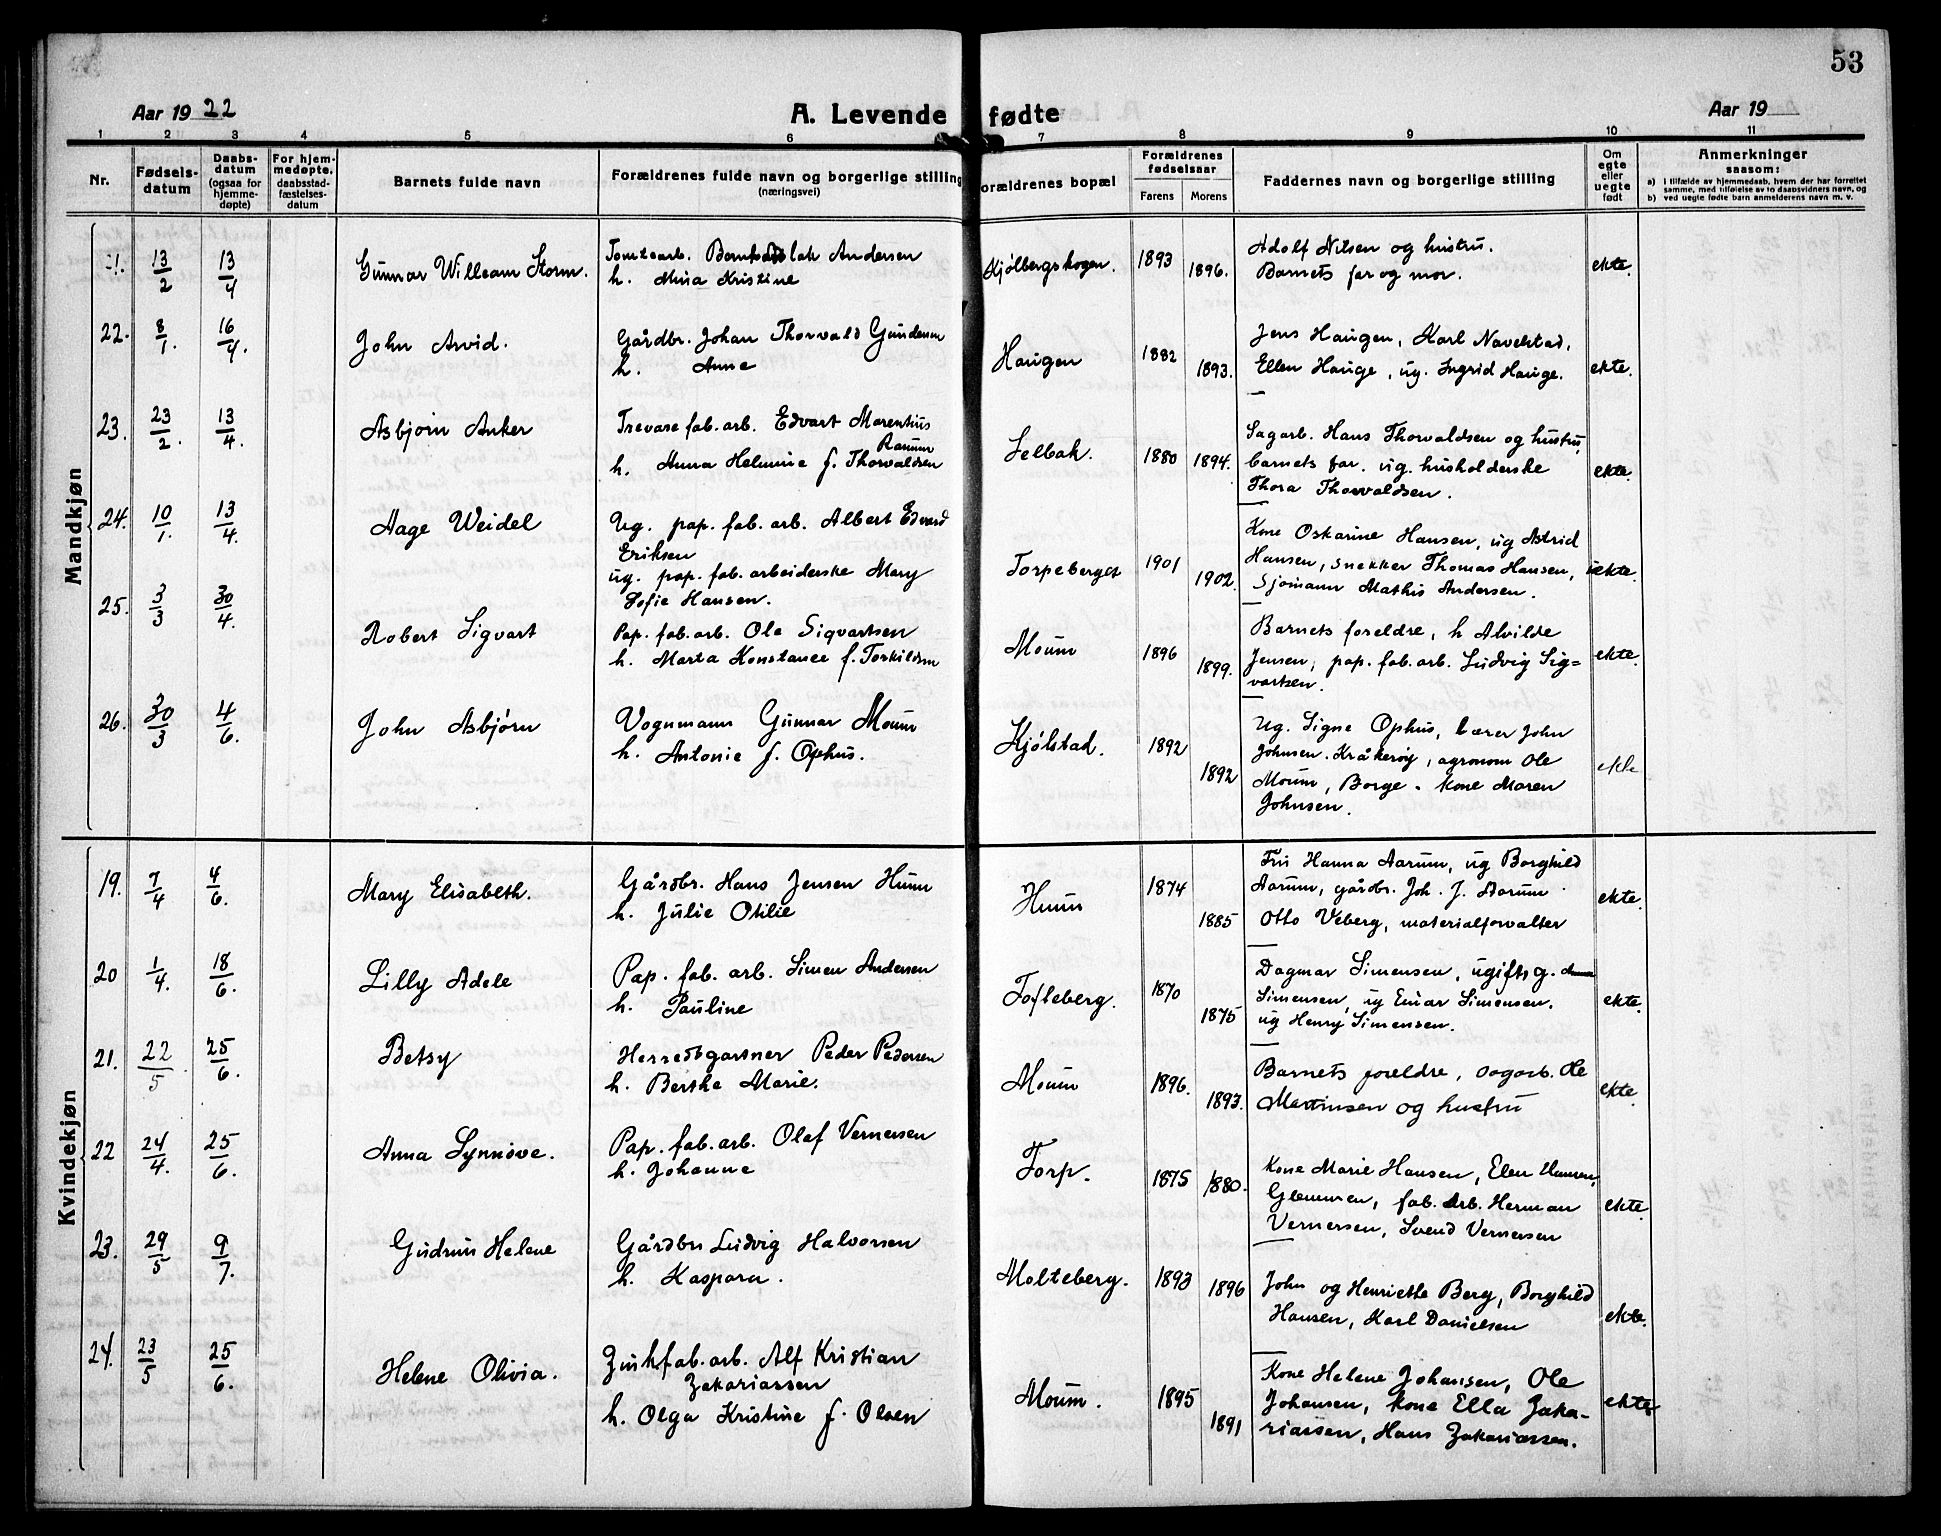 53
Aar 1922
A. Levende fødte
Aar 19
1 2 3 4 5 6 7 8 9 10 11
Nr.
Fødsels-
datum
Daabs-
datum
(ogsaa for
hjemme-
døpte)
For hjem-
medøpte.
daabsstad-
fæstelses-
datum
Barnets fulde navn
Forældrenes fulde navn og borgerlige stilling
(næringsvei)
orældrenes bopæl
Forældrenes
fødselsaar
Farens Morens
Faddernes navn og borgerlige stilling
Om
egte
eller
uegte
født
Anmerkninger
saasom:
a) i tilfælde av hjemmedaab, hvem der har forrettet
samme, med tilføielse av to daabsvidners navn, og
b) ved uegte fødte barn anmelderens navn m. v.
Mandkjøn
21. 13/2 13/4 Gunnar William Storm. Tomtearb. Andersen Kjølbergskogen. 1893 1896. Adolf Nilsen og hustru. ekte.
h. Mina Kristine Barnets far og mor.
22. 8/1. 16/4. John Arvid. Gårdbr. Johan Thorvald Gundersen Haugen 1882 1893. Jens Haugen, Karl Navelstad, ekte.
h. Anne Ellen Hauge, ug. Ingrid Hauge.
23. 23/2. 13/4. Asbjørn Anker Trevarefab.arb. Edvart Marentius Selbak. 1880 1894. Sagarb. Hans Thorvaldsen og hustru, ekte.
h. Anna Helmine f. Thorvaldsen barnets far. ug. husholderske
Thora Thorvaldsen.
24. 10/1. 13/4. Aage Weidel Ug. pap. fab. arb. Albert Edvard Torpeberget 1901 1902. Kone Oskarine Hansen, ug Astrid uekte.
Eriksen Hansen, snekker Thomas Hansen,
ug. pap. fab. arbeiderske Mary Sjømann Mathis Andersen.
Sofie Hansen.
25. 3/3 30/4. Robert Sigvart Pap. fab. arb. Ole Sigvartsen Moum 1896 1899. Barnets foreldre, h Alvilde ekte.
h. Marta Konstance f. Torkildsen Jensen, pap. fab. arb. Ludvig Sig=
vartsen.
26. 30/3 4/6. John Asbjørn Vognmann Gunnar Moum Kjølstad. 1892 1892 Ug. Signe Ophus, lærer John ekte
h. Antonie f. Ophus. Johnsen. Kråkerøy, agronom Ole
Moum, Borge. Kone Maren
Johnsen.
Kvindekjøn
19. 7/4 4/6. Mary Elisabeth. Gårdbr. Hans Jensen Huum Huum 1874 1885 Fru Hanna Aarum, ug Borghild ekte.
h. Julie Otilie Aarum, gårdbr. Joh. J. Aarum
Otto Veberg, materialforvalter
20 1/4. 18/6. Lilly Adele Pap. fab. arb. Simen Andersen Tofteberg. 1870 1875 Dagmar Simensen, ugift, g. ekte.
h. Pauline Simensen, ug Einar Simensen.
ug Henry Simensen.
21. 22/5 25/6. Betsy Herredsgartner Peder Pedersen Moum 1896. 1893. Barnets foreldre, sagarb. Ole ekte.
h. Berthe Marie. Martinsen og hustru
22 24/4. 25/6. Anna Synnøve. Pap. fab. arb. Olaf Vernersen Torp. 1875 1880. Kone Marie Hansen, Elen Hansen, ekte
h. Johanne Glemmen, fab. arb. Herman
Vernersen, Svend Vernersen
23. 29/5 9/7. Gudrun Helene Gårdbr Ludvig Halvorsen Molteberg. 1893 1896 John og Henriette Berg, Borghild ekte.
h. Kaspara. Hansen, Karl Danielsen
24. 23/5 25/6. Helene Olivia. Zinkfab. arb. Alf Kristian Moum. 1895 1891 Kone Helene Johansen, Ole ekte
Zakariassen Johansen, kone Ella Zaka-
h. Olga Kristine f. Olsen riassen, Hans Zakariassen.